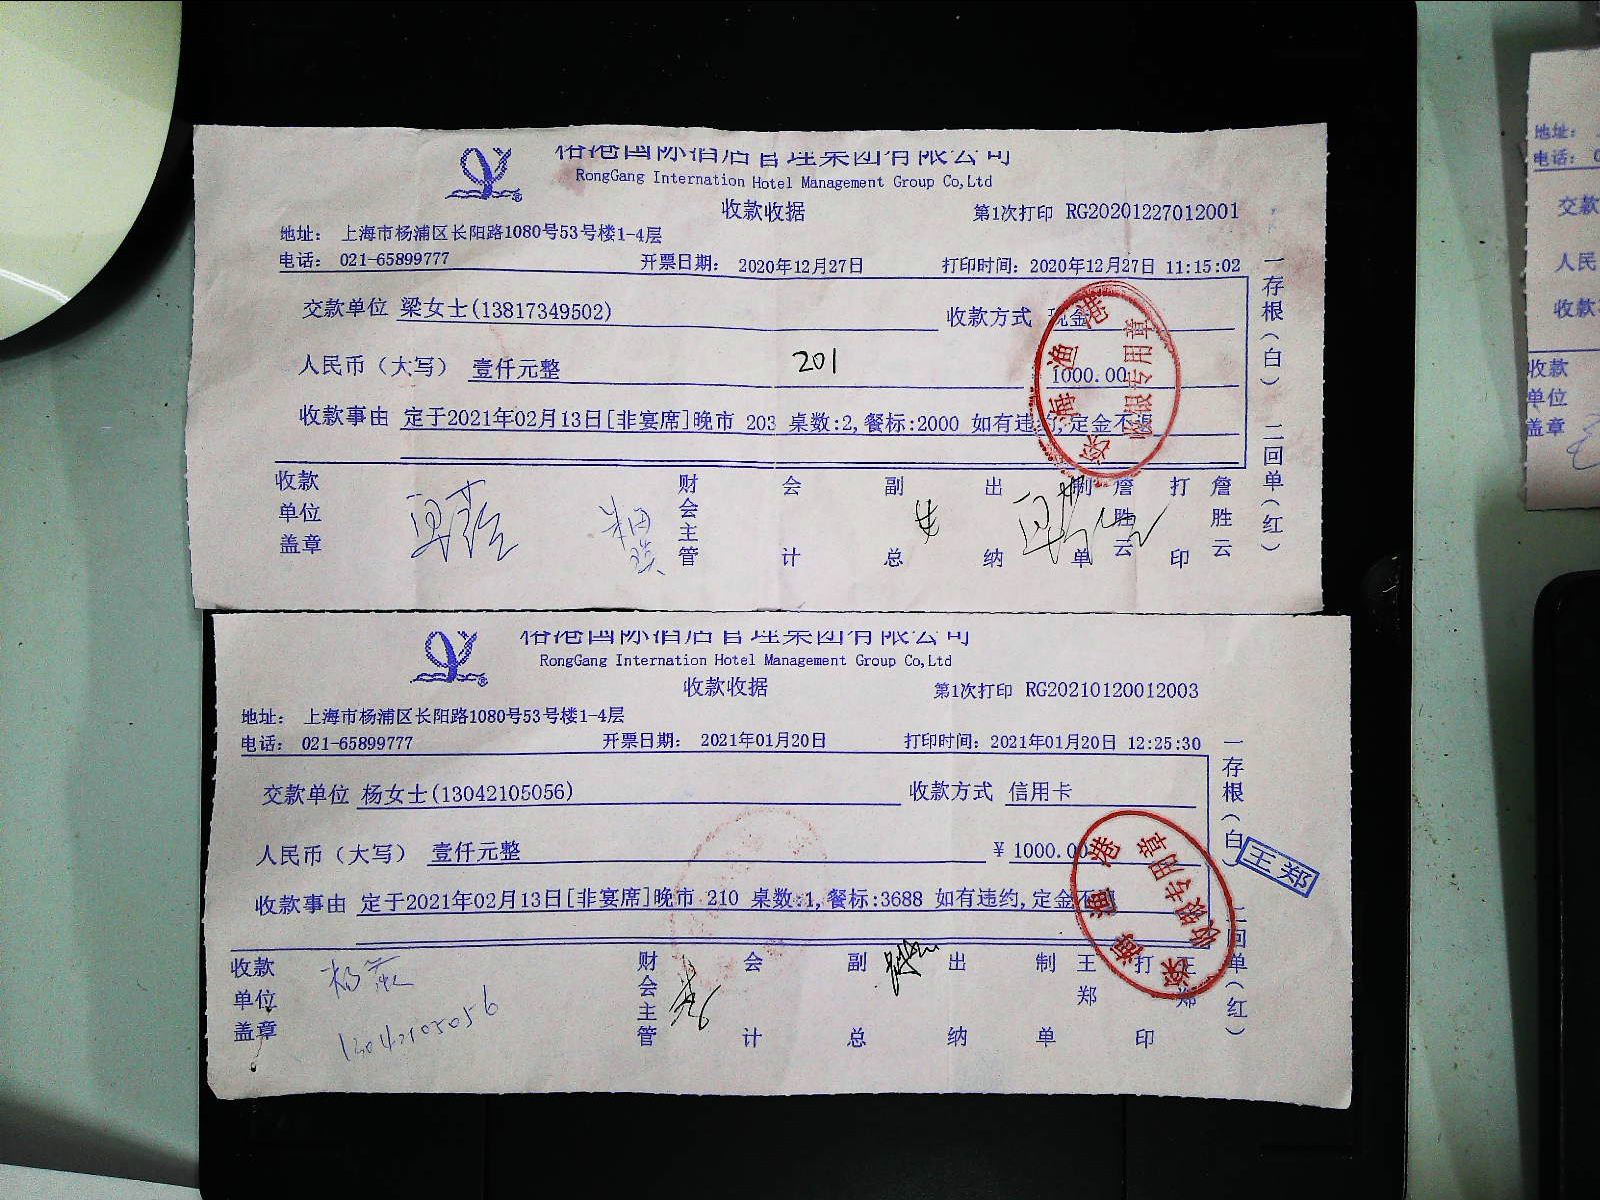 榕港国际酒店管理集团有限公司
RongGang Internation Hotel Management Group Co,Ltd
收款收据 第1次打印 RG20201227012001
地址： 上海市杨浦区长阳路1080号53号楼1-4层
电话： 021-65899777 开票日期： 2020年12月27日 打印时间：2020年12月27日 11:15:02
交款单位 梁女士(13817349502) 收款方式 现金
人民币（大写） 壹仟元整 201 1000.00
收款事由 定于2021年02月13日[非宴席]晚市 203 桌数:2,餐标:2000 如有违约,定金不退
收款单位盖章 财会主管 会计 副总 出纳 制单 詹胜云 打印 詹胜云
一存根（白） 二回单（红）
深海渔港
收银专用章
榕港国际酒店管理集团有限公司
RongGang Internation Hotel Management Group Co,Ltd
收款收据 第1次打印 RG20210120012003
地址： 上海市杨浦区长阳路1080号53号楼1-4层
电话： 021-65899777 开票日期： 2021年01月20日 打印时间：2021年01月20日 12:25:30
交款单位 杨女士(13042105056) 收款方式 信用卡
人民币（大写） 壹仟元整 ¥ 1000.00
收款事由 定于2021年02月13日[非宴席]晚市 210 桌数:1,餐标:3688 如有违约,定金不
收款单位盖章 财会主管 会计 副总 出纳 制单 王郑 打印 王郑
13042105056
一存根（白） 二回单（红）
王郑
深海渔港
收银专用章
地址：
电话：
交款
人民
收款
收款
单位
盖章